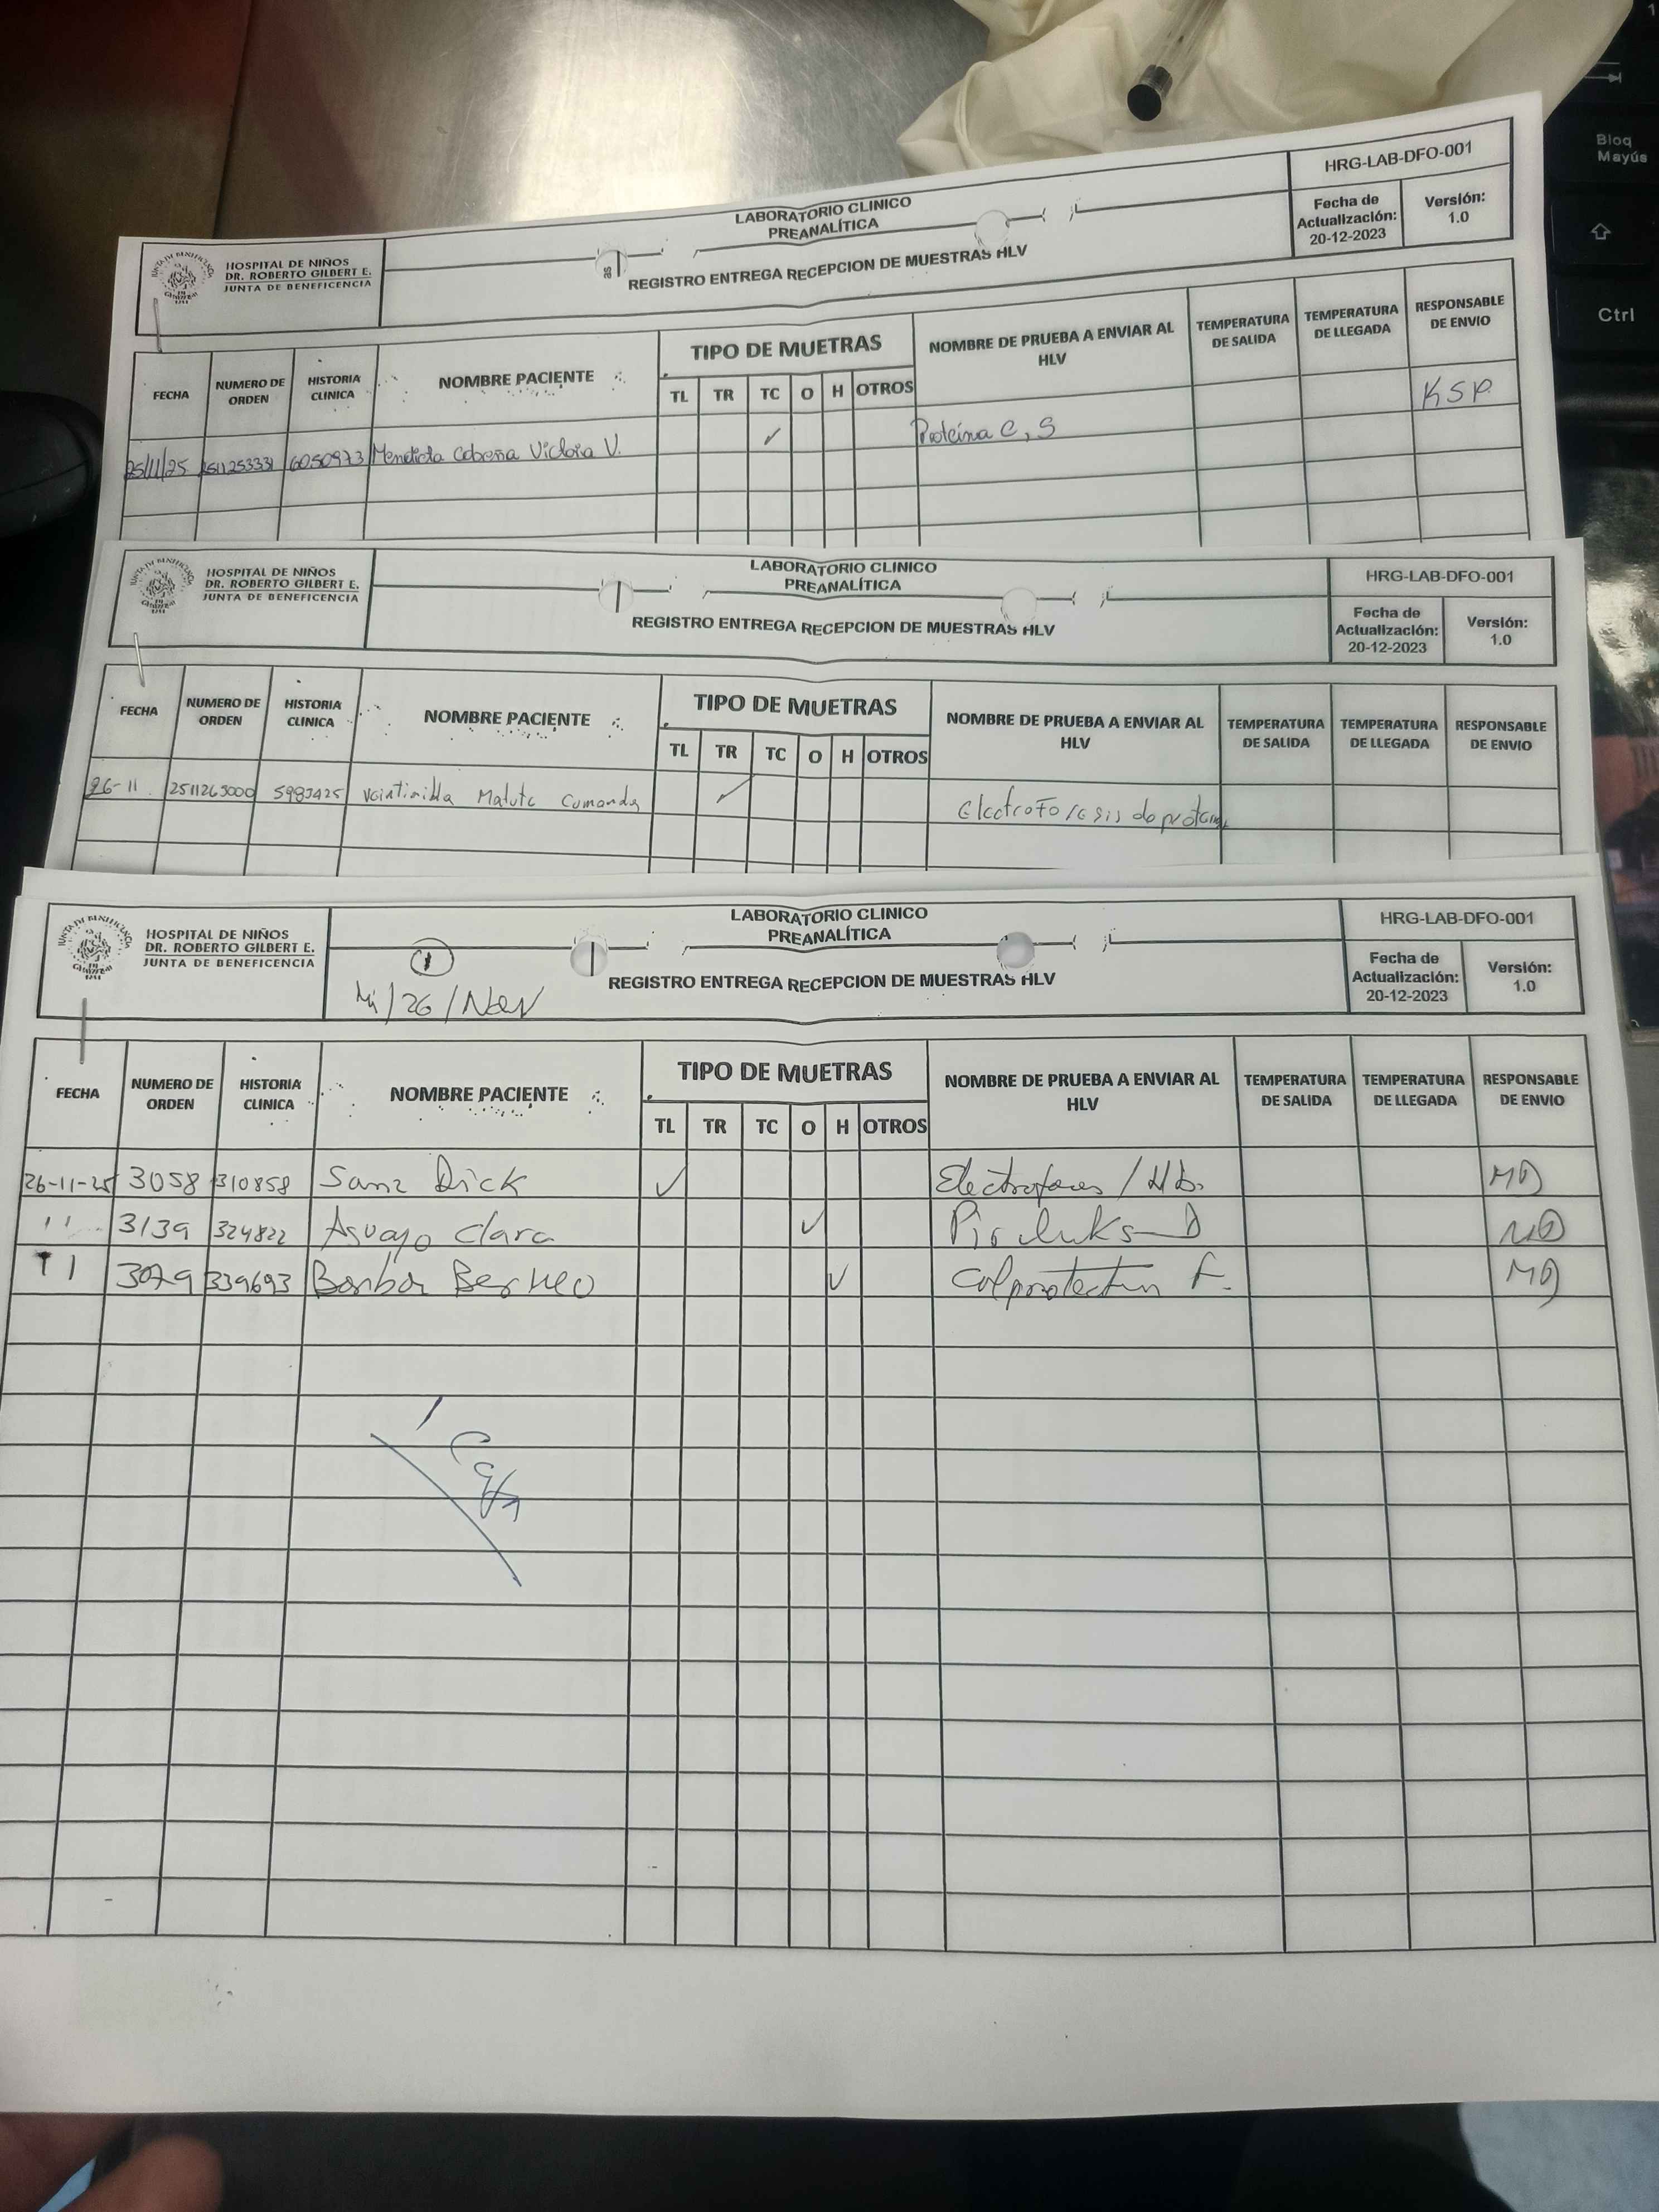 Bloq
Mayús
Ctrl
HRG-LAB-DFO-001
LABORATORIO CLINICO
PREANALÍTICA
Fecha de
Actualización:
20-12-2023
Versión:
1.0
HOSPITAL DE NIÑOS
DR. ROBERTO GILBERT E.
JUNTA DE BENEFICENCIA
REGISTRO ENTREGA RECEPCION DE MUESTRAS HLV
FECHA NUMERO DE ORDEN HISTORIA CLINICA NOMBRE PACIENTE TIPO DE MUETRAS NOMBRE DE PRUEBA A ENVIAR AL HLV TEMPERATURA DE SALIDA TEMPERATURA DE LLEGADA RESPONSABLE DE ENVIO
TL TR TC O H OTROS
25/11/25 2511253331 6050973 Victoria V. ✓ Proteína C, S KSP
HOSPITAL DE NIÑOS
DR. ROBERTO GILBERT E.
JUNTA DE BENEFICENCIA
LABORATORIO CLINICO
PREANALÍTICA
REGISTRO ENTREGA RECEPCION DE MUESTRAS HLV
HRG-LAB-DFO-001
Fecha de
Actualización:
20-12-2023
Versión:
1.0
FECHA NUMERO DE ORDEN HISTORIA CLINICA NOMBRE PACIENTE TIPO DE MUETRAS NOMBRE DE PRUEBA A ENVIAR AL HLV TEMPERATURA DE SALIDA TEMPERATURA DE LLEGADA RESPONSABLE DE ENVIO
TL TR TC O H OTROS
26-11 Matute ✓
HOSPITAL DE NIÑOS
DR. ROBERTO GILBERT E.
JUNTA DE BENEFICENCIA
LABORATORIO CLINICO
PREANALÍTICA
REGISTRO ENTREGA RECEPCION DE MUESTRAS HLV
1
Mi/26/Nov
HRG-LAB-DFO-001
Fecha de
Actualización:
20-12-2023
Versión:
1.0
FECHA NUMERO DE ORDEN HISTORIA CLINICA NOMBRE PACIENTE TIPO DE MUETRAS NOMBRE DE PRUEBA A ENVIAR AL HLV TEMPERATURA DE SALIDA TEMPERATURA DE LLEGADA RESPONSABLE DE ENVIO
TL TR TC O H OTROS
26-11-25 3058 310858 Dick ✓ MD
" 3139 324822 Clara ✓ MD
" 3079 339693 ✓ MD